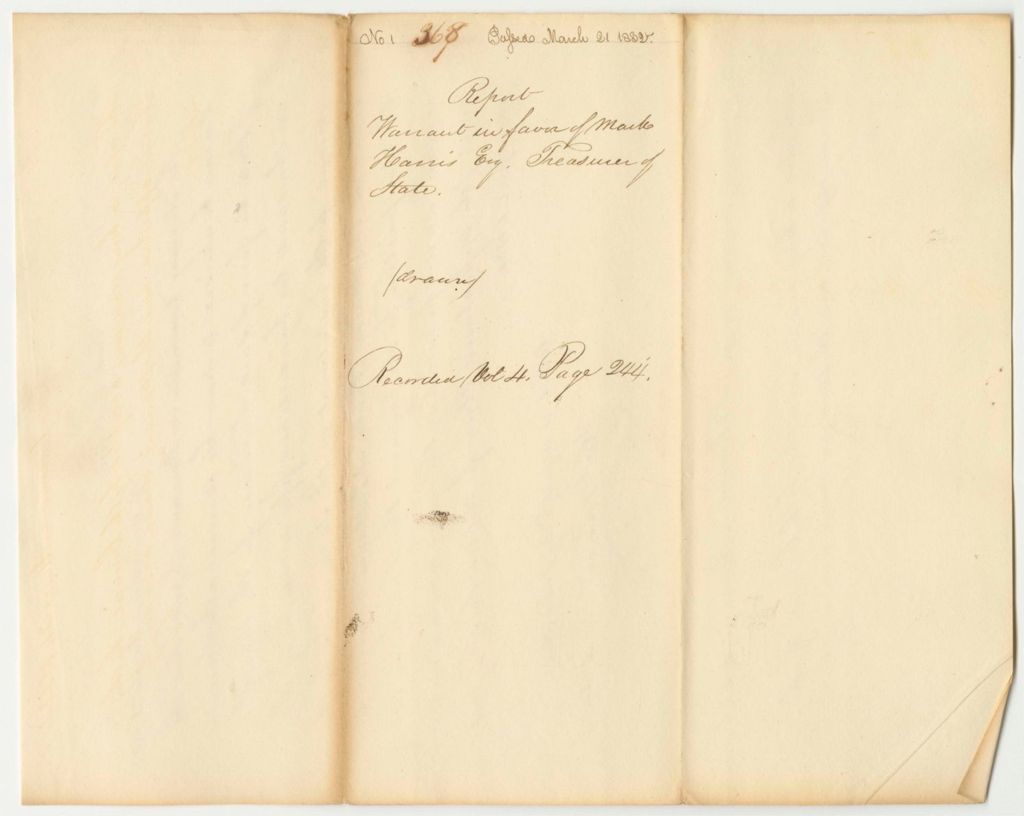 No 1 368 Passed March 21 1832.
Report
Warrant in favor of Mark
Harris Esq. Treasurer of
State.
(drawn)
Recorded Vol 4. Page 244.